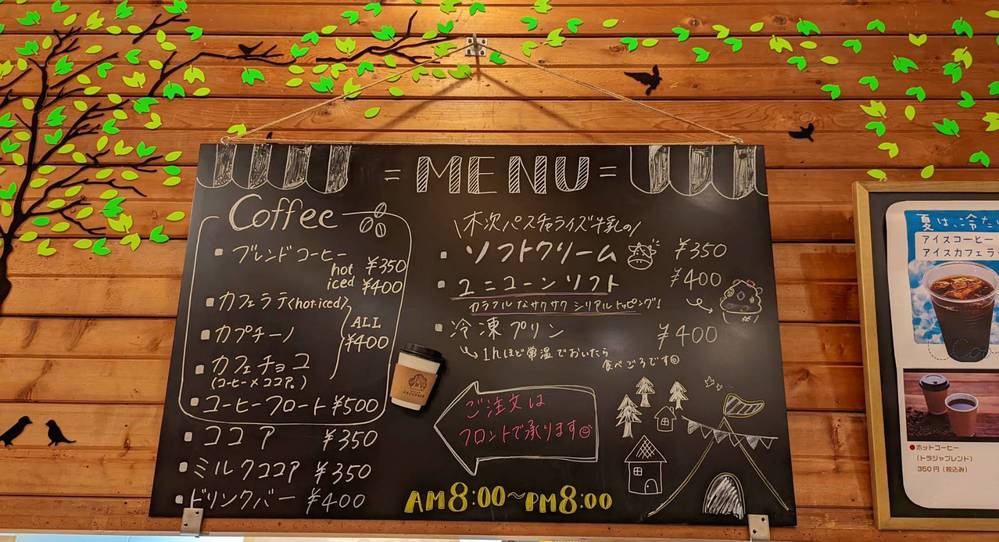 = MENU =
Coffee
ブレンドコーヒー
hot ¥350
iced ¥400
カフェラテ(hot・iced)
カプチーノ
ALL
¥400
カフェチョコ
(コーヒー×ココア。)
コーヒーフロート ¥500
ココア ¥350
ミルクココア ¥350
ドリンクバー ¥400
\木次パスチャライズ牛乳の/
ソフトクリーム ¥350
ユニコーンソフト ¥400
カラフルなサクサクシリアルトッピング!
冷凍プリン ¥400
1hほど常温でおいたら
食べごろです
ご注文は
フロントで承ります
AM8:00~PM8:00
夏は、冷た
アイスコーヒー
アイスカフェラ
●ホットコーヒー
(トラジャブレンド)
350円(税込み)